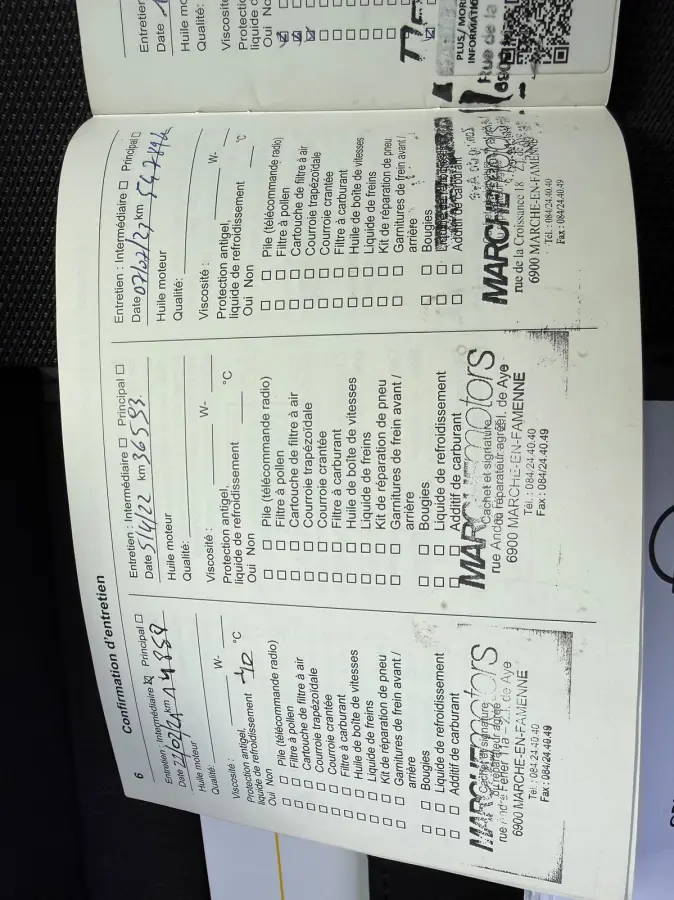 6
Confirmation d'entretien
Entretien : Intermédiaire ☒ Principal ☐
Date 22/02/21 km 14859
Huile moteur
Qualité:
Viscosité : W-
Protection antigel,
liquide de refroidissement -40 °C
Oui Non
☐ ☐ Pile (télécommande radio)
☐ ☐ Filtre à pollen
☐ ☐ Cartouche de filtre à air
☐ ☐ Courroie trapézoïdale
☐ ☐ Courroie crantée
☐ ☐ Filtre à carburant
☐ ☐ Huile de boîte de vitesses
☐ ☐ Liquide de freins
☐ ☐ Kit de réparation de pneu
☐ ☐ Garnitures de frein avant /
arrière
☐ ☐ Bougies
☐ ☐ Liquide de refroidissement
☐ ☐ Additif de carburant
MARCHE motors
Cachet et signature
du réparateur agréé
rue André Feher 11a - Z.I. de Aye
6900 MARCHE-EN-FAMENNE
Tél. : 084/24.40.40
Fax : 084/24.40.49
Entretien : Intermédiaire ☐ Principal ☐
Date 5/4/22 km 36593.
Huile moteur
Qualité:
Viscosité : W-
Protection antigel,
liquide de refroidissement °C
Oui Non
☐ ☐ Pile (télécommande radio)
☐ ☐ Filtre à pollen
☐ ☐ Cartouche de filtre à air
☐ ☐ Courroie trapézoïdale
☐ ☐ Courroie crantée
☐ ☐ Filtre à carburant
☐ ☐ Huile de boîte de vitesses
☐ ☐ Liquide de freins
☐ ☐ Kit de réparation de pneu
☐ ☐ Garnitures de frein avant /
arrière
☐ ☐ Bougies
☐ ☐ Liquide de refroidissement
☐ ☐ Additif de carburant
MARCHE motors
Cachet et signature
du réparateur agréé
rue André de Aye
6900 MARCHE-EN-FAMENNE
Tél. : 084/24.40.40
Fax : 084/24.40.49
Entretien : Intermédiaire ☐ Principal ☐
Date km
Huile moteur
Qualité:
Viscosité : W-
Protection antigel,
liquide de refroidissement °C
Oui Non
☐ ☐ Pile (télécommande radio)
☐ ☐ Filtre à pollen
☐ ☐ Cartouche de filtre à air
☐ ☐ Courroie trapézoïdale
☐ ☐ Courroie crantée
☐ ☐ Filtre à carburant
☐ ☐ Huile de boîte de vitesses
☐ ☐ Liquide de freins
☐ ☐ Kit de réparation de pneu
☐ ☐ Garnitures de frein avant /
arrière
☐ ☐ Bougies
☐ ☐
☐ ☐ Additif de carburant
MARCHE
rue de la Croissance 18
6900 MARCHE-EN-FAMENNE
Tél. : 084/24.40.40
Fax : 084/24.40.49
Entretien
Date
Huile mo
Qualité:
Viscosité
Protectio
liquide de
Oui No
PLUS/MORE
INFORMATI
Rue de la
6900